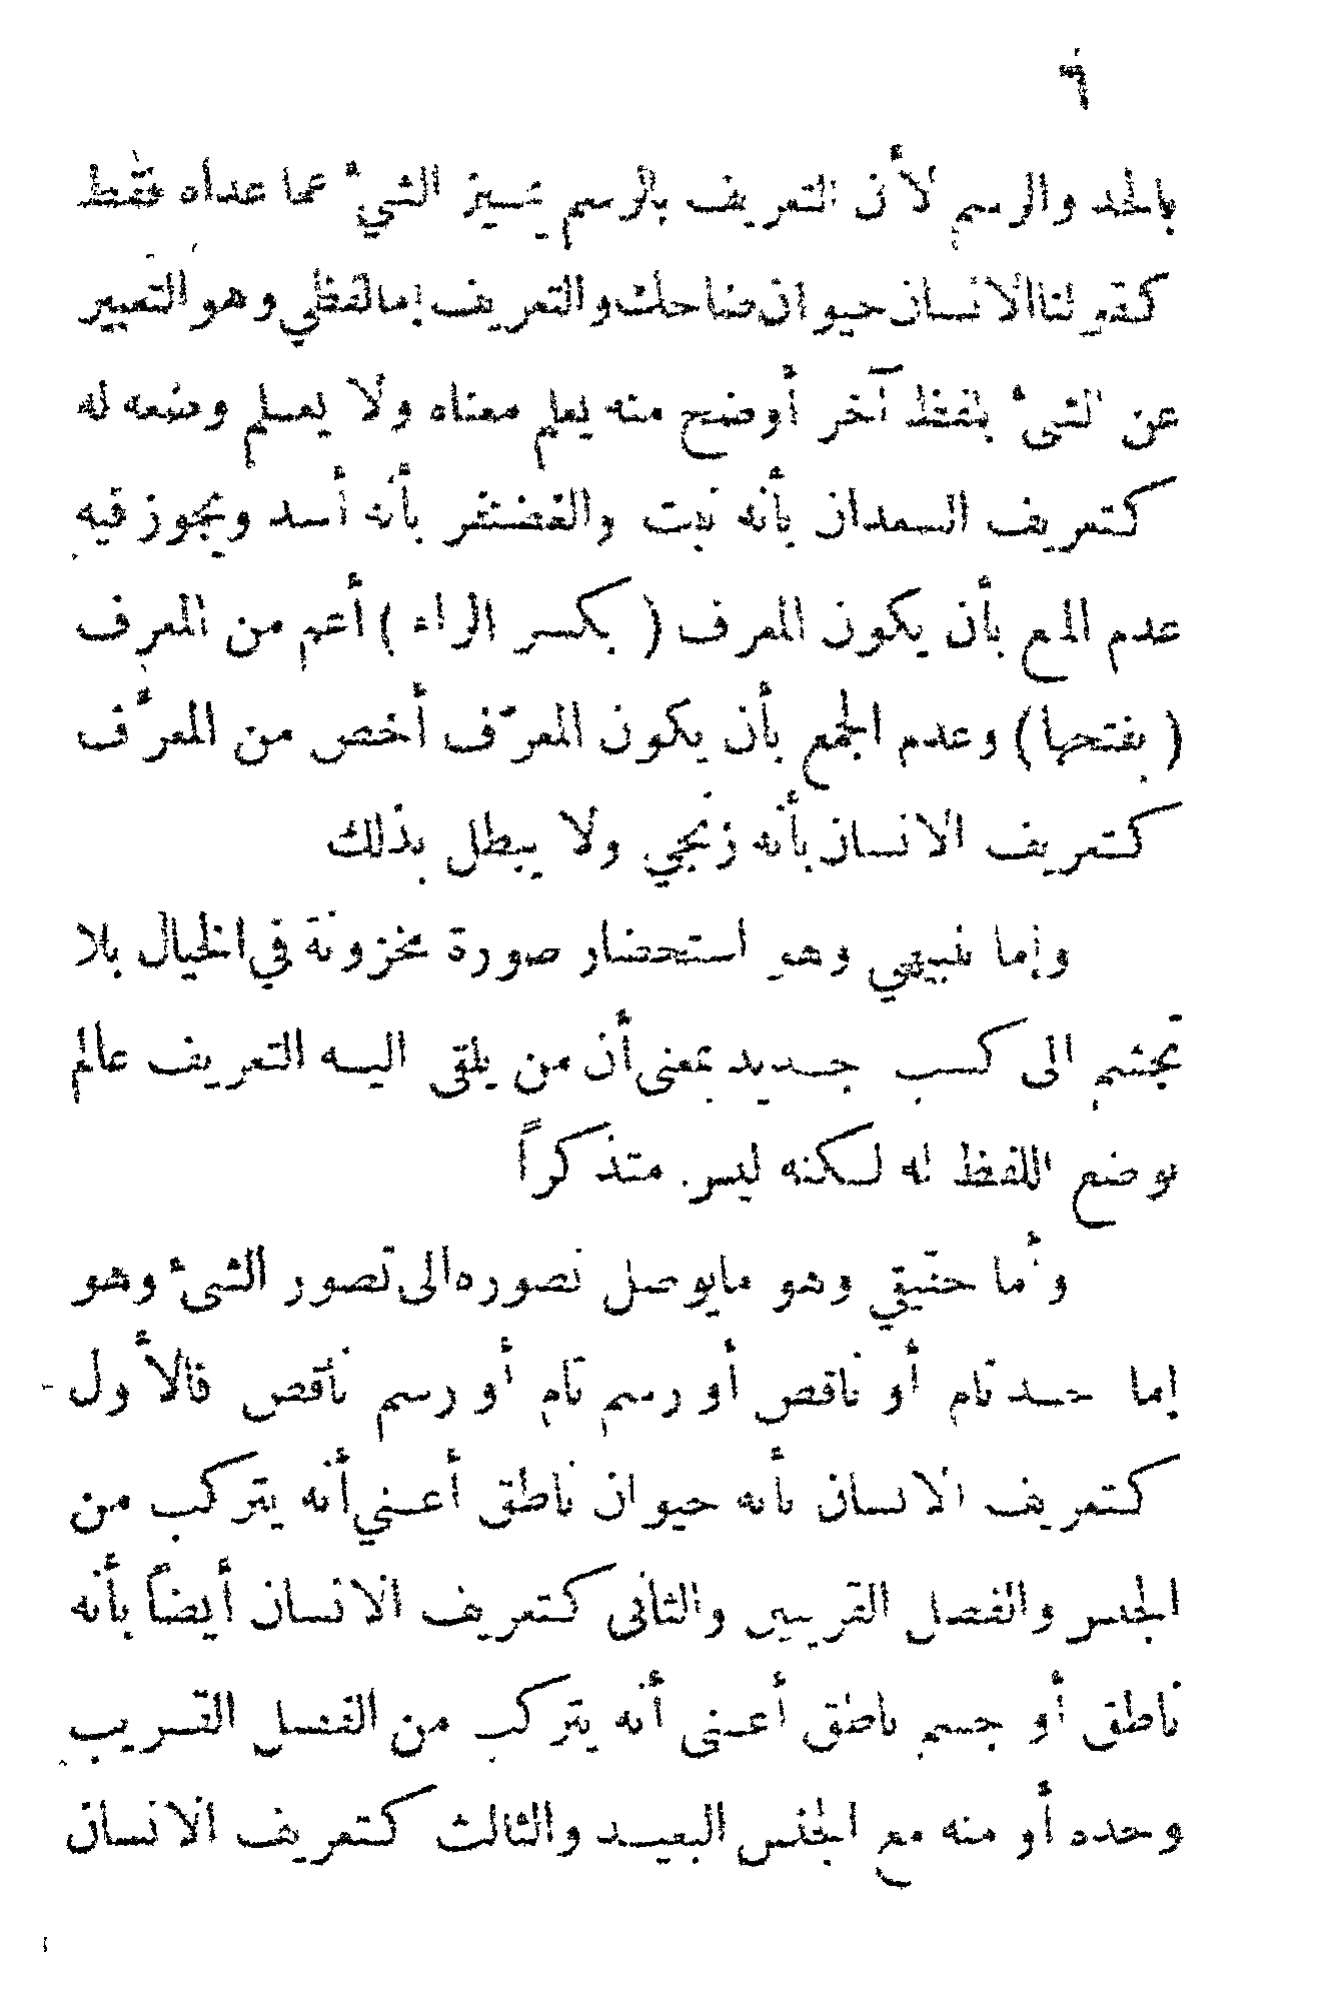 ٦
بالحد والرسم لأن التعريف بالرسم يميز الشيء عما عداه فقط
كقولنا الانسان حيوان ضاحك والتعريف إما لفظي وهو التعبير
عن الشيء بلفظ آخر أوضح منه يعلم معناه ولا يعلم وضعه له
كتعريف السعدان بأنه نبت والغضنفر بأنه أسد ويجوز فيه
عدم المنع بأن يكون المعرف ( بكسر الراء ) أعم من المعرف
( بفتحها ) وعدم الجمع بأن يكون المعرّف أخص من المعرَّف
كتعريف الانسان بأنه زنجي ولا يبطل بذلك
وإما تنبيهي وهو استحضار صورة مخزونة في الخيال بلا
تجشم الى كسب جديد بمعنى أن من يلقى اليه التعريف عالم
بوضع اللفظ له لكنه ليس متذكراً
وأما حقيقي وهو مايوصل تصوره الى تصور الشيء وهو
إما حد تام أو ناقص أو رسم تام أو رسم ناقص فالأول
كتعريف الانسان بأنه حيوان ناطق أعني أنه يتركب من
الجنس والفصل القريبين والثانى كتعريف الانسان أيضاً بأنه
ناطق أو جسم ناطق أعنى أنه يتركب من الفصل القريب
وحده أو منه مع الجنس البعيد والثالث كتعريف الانسان